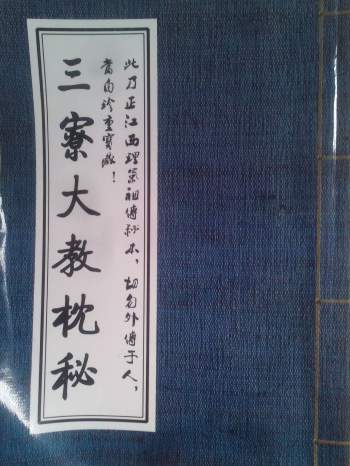 此乃正江西理氣祖傳本，切勿外傳于人，
當自珍重寶藏！
三寮大教枕秘